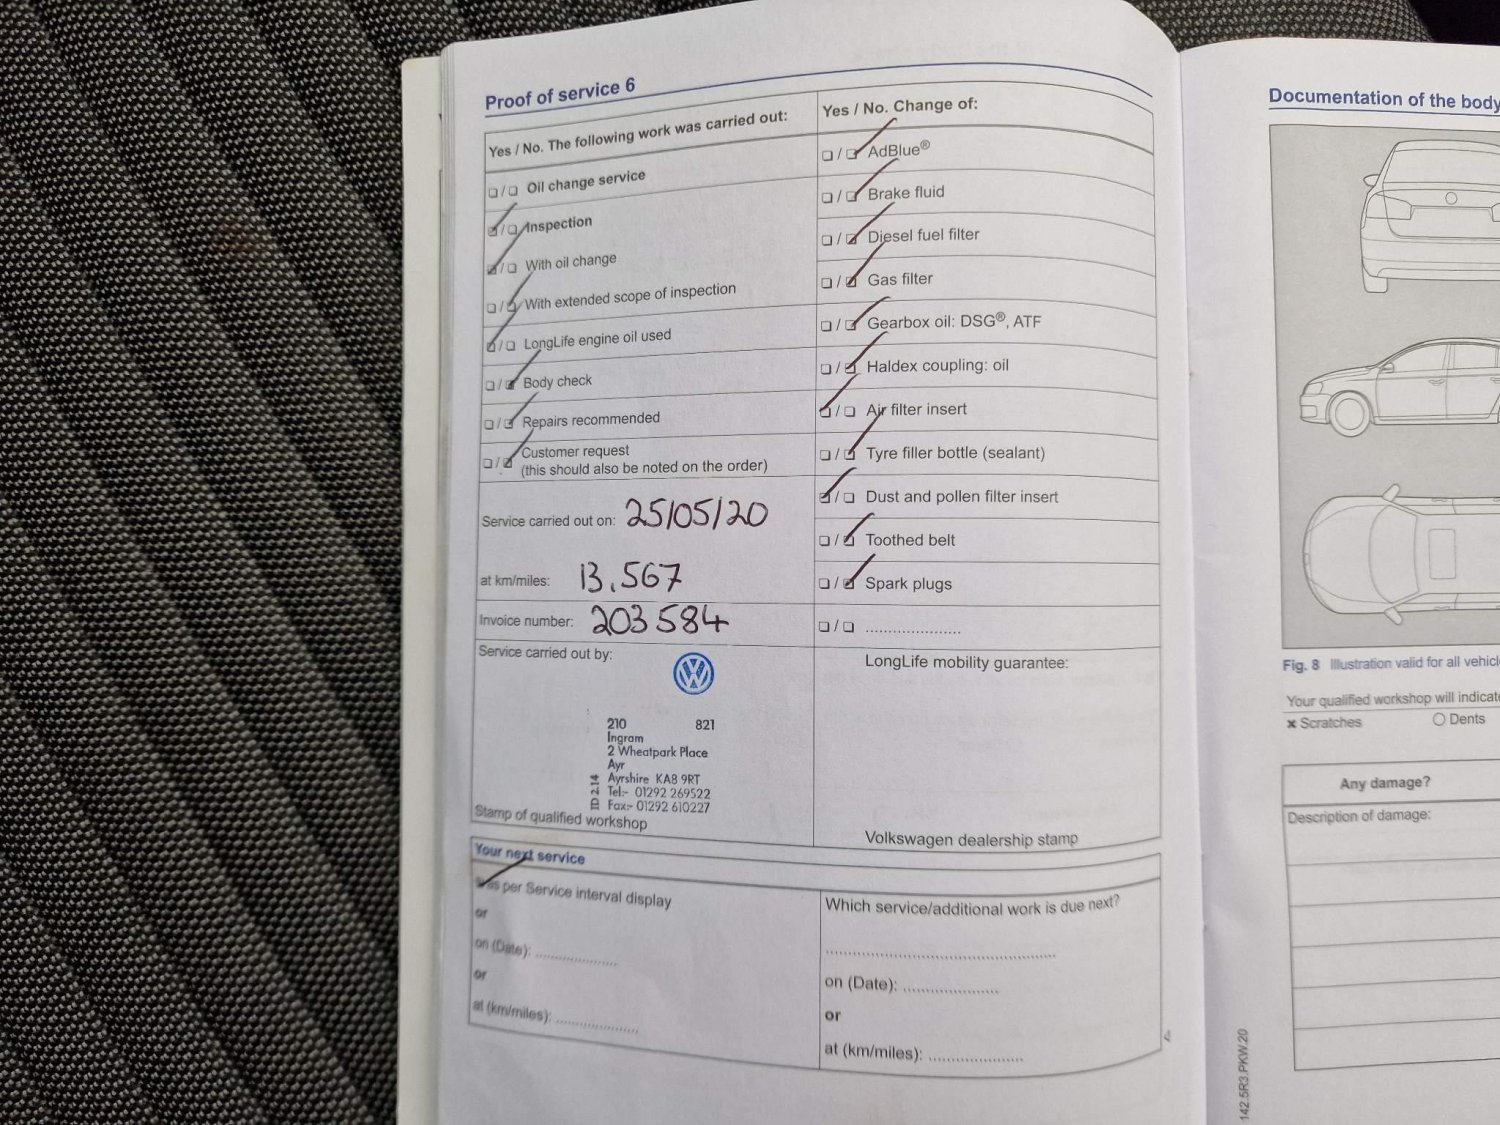 Proof of service 6
Yes / No. The following work was carried out:
❏/❏ Oil change service
❏/❏ Inspection
❏/❏ With oil change
❏/❏ With extended scope of inspection
❏/❏ LongLife engine oil used
❏/❏ Body check
❏/❏ Repairs recommended
❏/❏ Customer request
(this should also be noted on the order)
Service carried out on: 25/05/20
at km/miles: 13,567
Invoice number: 203584
Service carried out by:
210 821
Ingram
2 Wheatpark Place
Ayr
Ayrshire KA8 9RT
Tel:- 01292 269522
Fax:- 01292 610227
ID 214
Stamp of qualified workshop
Yes / No. Change of:
❏/❏ AdBlue®
❏/❏ Brake fluid
❏/❏ Diesel fuel filter
❏/❏ Gas filter
❏/❏ Gearbox oil: DSG®, ATF
❏/❏ Haldex coupling: oil
❏/❏ Air filter insert
❏/❏ Tyre filler bottle (sealant)
❏/❏ Dust and pollen filter insert
❏/❏ Toothed belt
❏/❏ Spark plugs
❏/❏ .....................
LongLife mobility guarantee:
Volkswagen dealership stamp
Your next service
as per Service interval display
or
on (Date): .....................
or
at (km/miles): .....................
Which service/additional work is due next?
..........................................................
on (Date): .....................
or
at (km/miles): .....................
Documentation of the body
Fig. 8 Illustration valid for all
Your qualified workshop will
× Scratches ○ Dents
Any damage?
Description of damage:
142.5R3.PKW.20